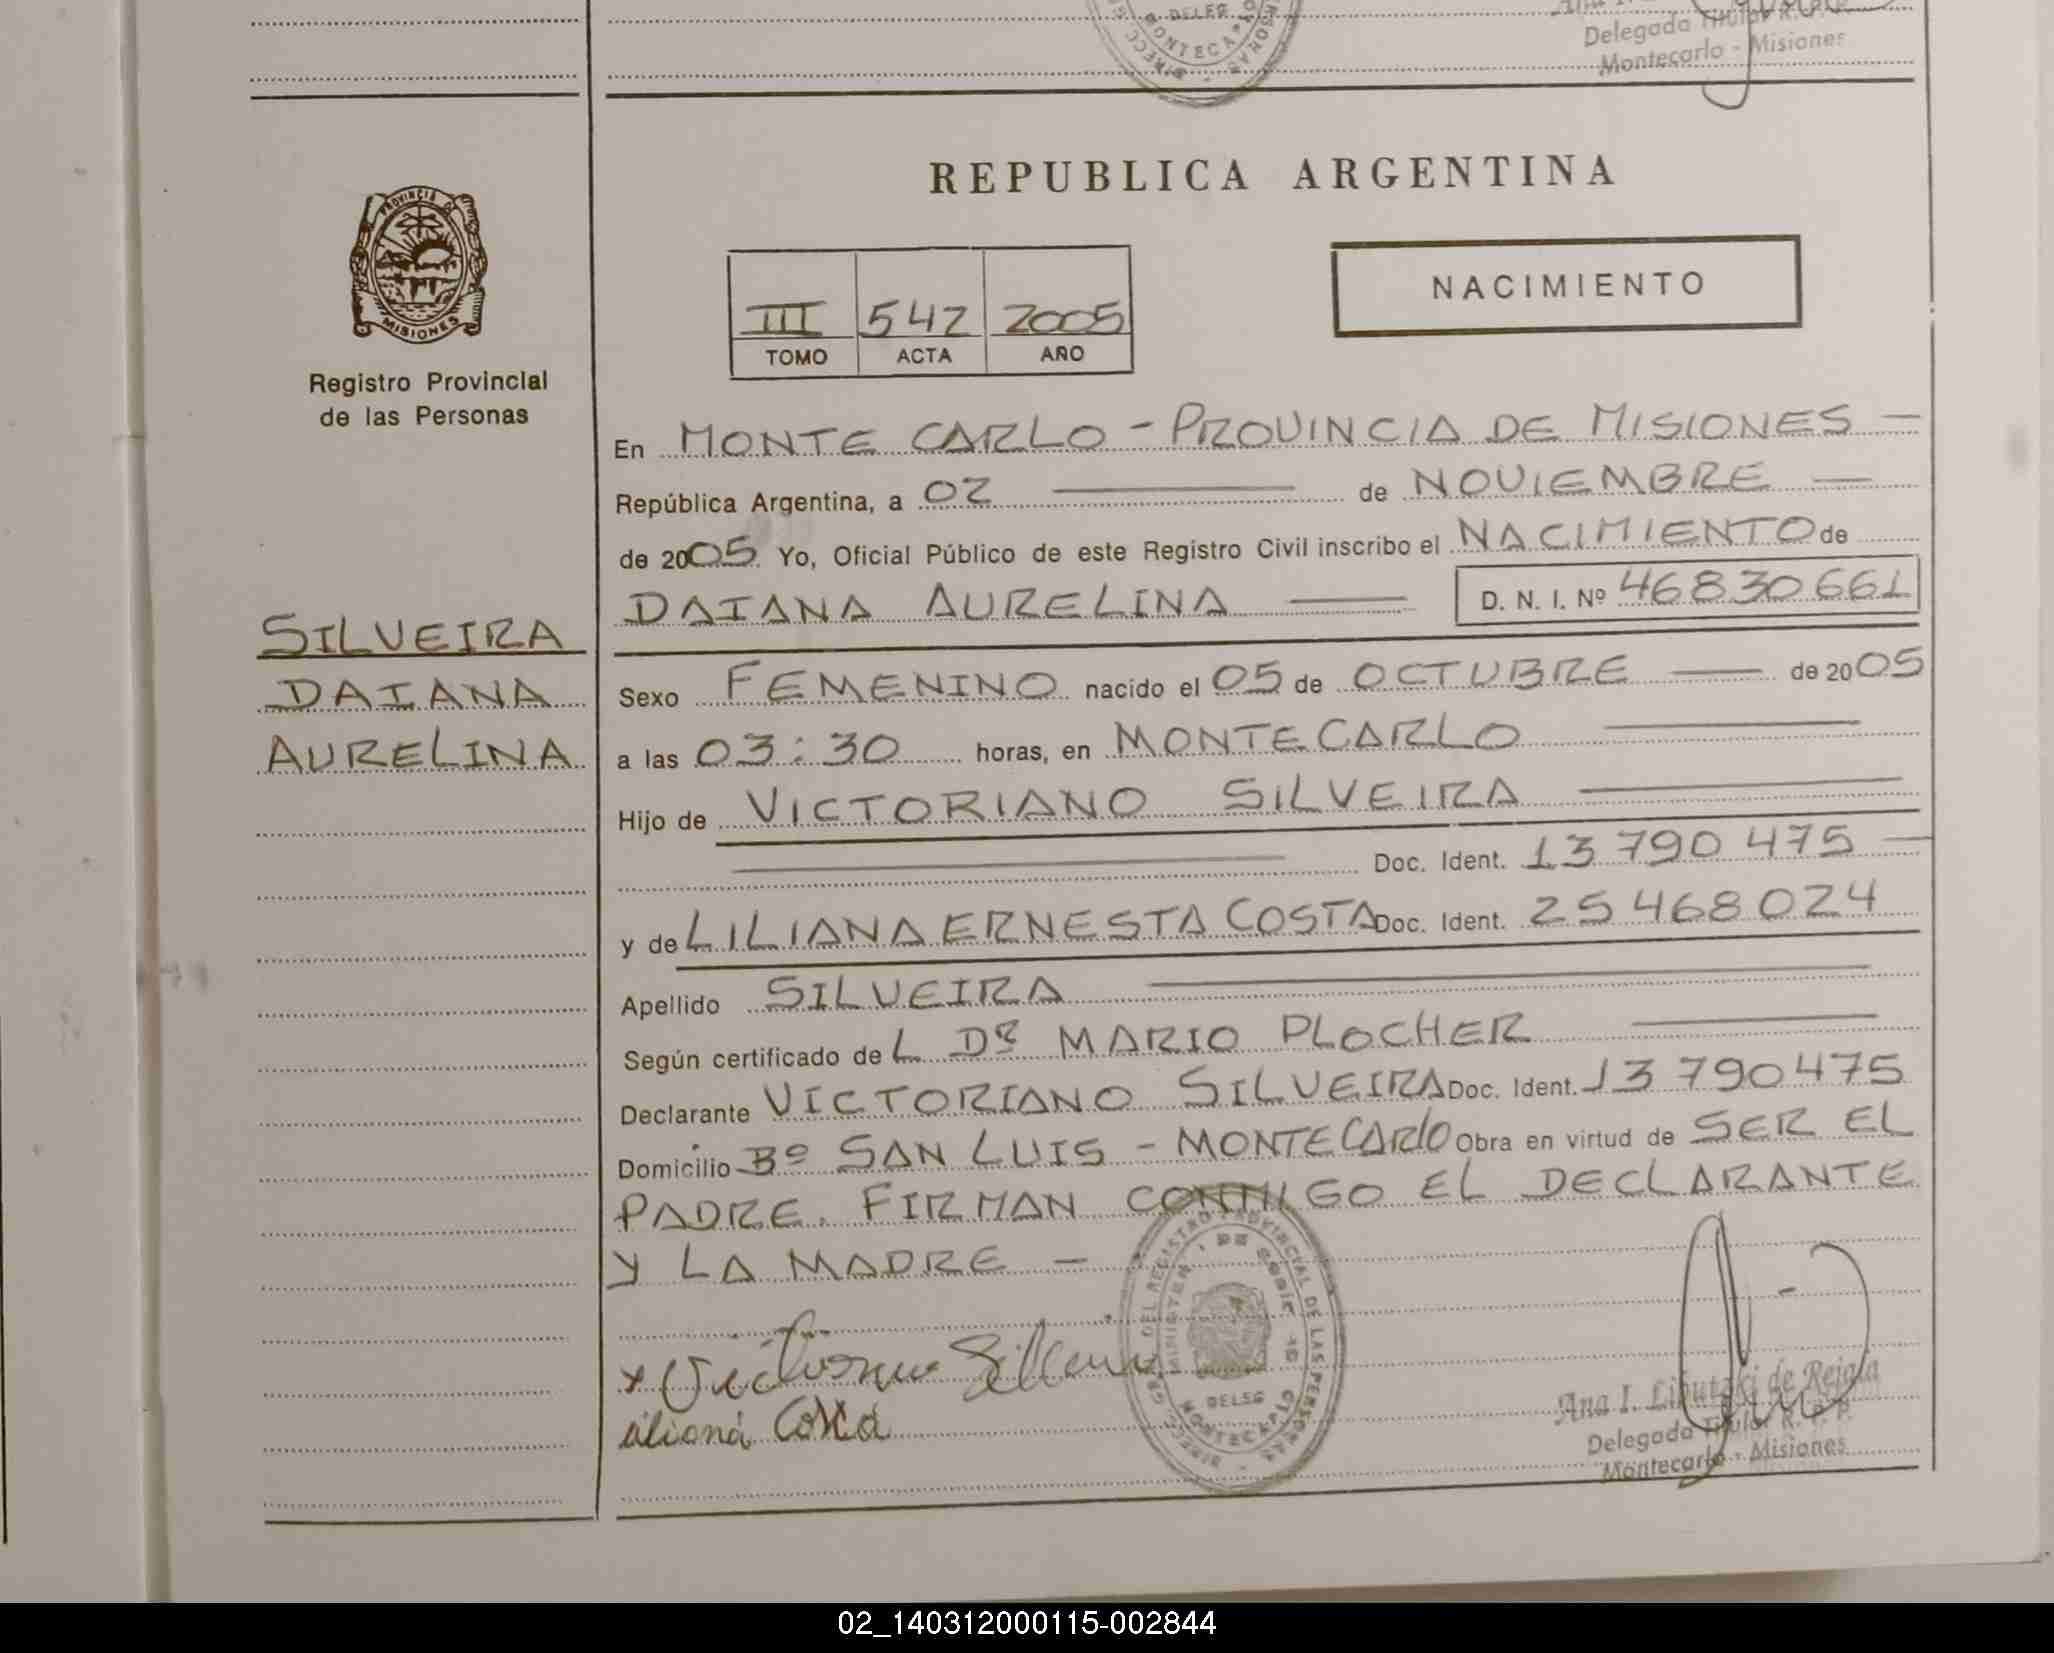 Delegada Titular R. P. P.
Montecarlo - Misiones
DELEG
MONTECARLO
REPUBLICA ARGENTINA
PROVINCIA DE
MISIONES
Registro Provincial
de las Personas
III 542 2005
TOMO ACTA AÑO
NACIMIENTO
En MONTE CARLO - PROVINCIA DE MISIONES -
República Argentina, a 02 — de NOVIEMBRE —
de 2005. Yo, Oficial Público de este Registro Civil inscribo el NACIMIENTO de
DAIANA AURELINA — D. N. I. Nº 46830661
SILVEIRA
DAIANA
AURELINA
Sexo FEMENINO nacido el 05 de OCTUBRE — de 2005
a las 03:30 horas, en MONTECARLO —
Hijo de VICTORIANO SILVEIRA —
— Doc. Ident. 13 790 475 —
y de LILIANA ERNESTA COSTA Doc. Ident. 25 468 024
Apellido SILVEIRA —
Según certificado de L Dr MARIO PLOCHER —
Declarante VICTORIANO SILVEIRA Doc. Ident. 13 790475
Domicilio Bº SAN LUIS - MONTECARlO Obra en virtud de SER EL
PADRE. FIRMAN CONMIGO EL DECLARANTE
Y LA MADRE -
DEL REGISTRO PROVINCIAL DE LAS PERSONAS
DELEG
MONTECARLO
Delegada Titular R. P. P.
Montecarlo - Misiones
02_140312000115-002844